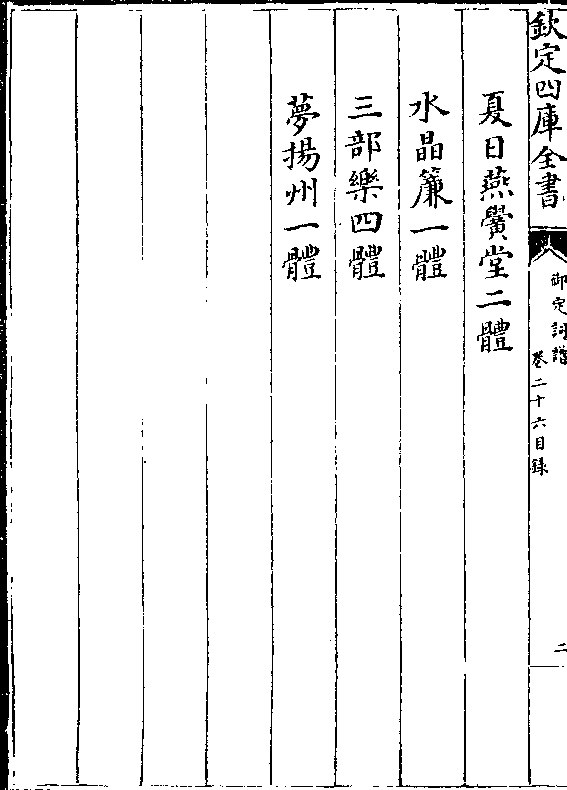 欽定四庫全書
御定詞譜
卷二十六目錄
二
夏日燕黌堂二體
水晶簾一體
三部樂四體
夢揚州一體